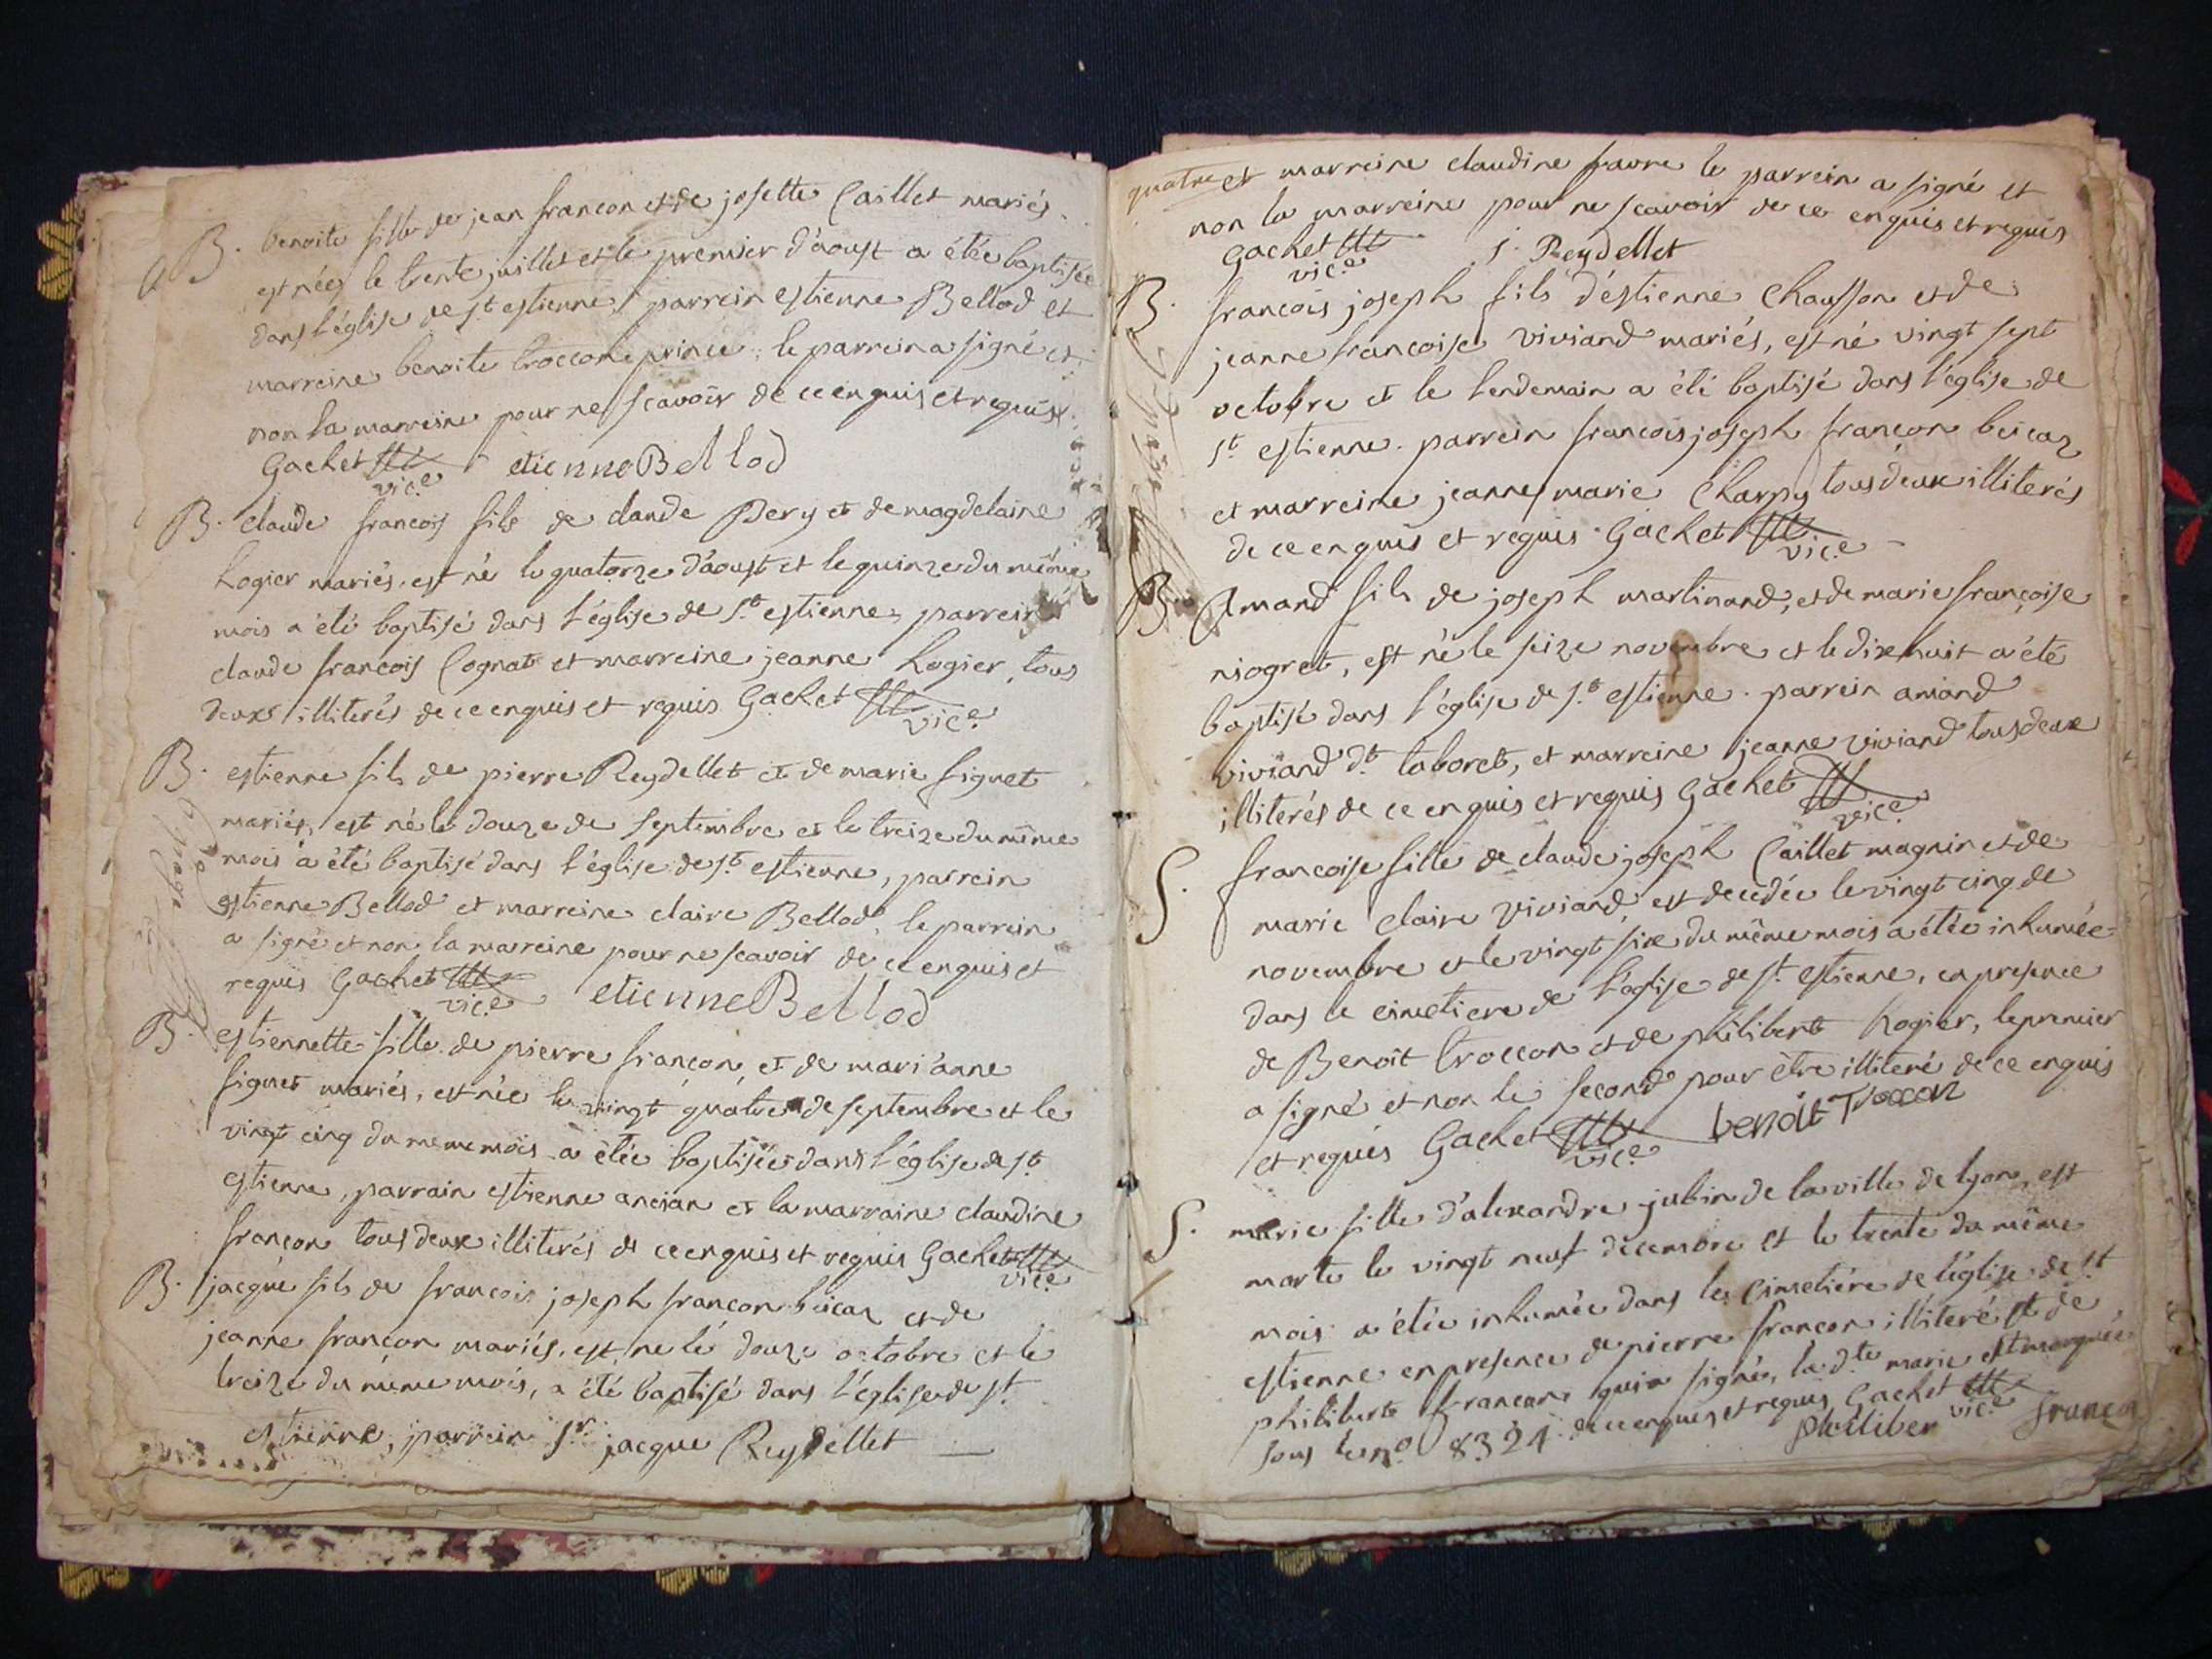 B. benoite fille de jean francon et de josette Caillet mariés
est née le trente juillet et le premier d'aoust a étée baptisée
dans l'église de st estienne, parrein estienne Bellod et
marreine benoite troccon prince, le parrein a signé et
non la marreine pour ne scavoir de ce enquis et requis
Gachet vice etienne Bellod
B. claude francois fils de claude Pery et de magdelaine
hogier mariés, est né le quatorze d'aoust et le quinze du même
mois a été baptisé dans l'église de st estienne, parrein
claude francois Cognat et marreine jeanne hogier, tous
deux illiterés de ce enquis et requis Gachet vice
B. estienne fils de pierre Reydellet et de marie signet
mariés, est né le douze de septembre et le treize du même
mois a été baptisé dans l'église de st estienne, parrein
estienne Bellod et marreine claire Bellod, le parrein
a signé et non la marreine pour ne scavoir de ce enquis et
requis Gachet vice etienne Bellod
B. estiennette fille de pierre françon, et de mari'anne
signet mariés, est née le vingt quatre de septembre et le
vingt cinq du meme mois a étée baptisée dans l'église de st
estienne, parrain estienne ancian et la marraine claudine
françon tous deux illiterés de ce enquis et requis Gachet vice
B. jacque fils de francois joseph francon beicaz et de
jeanne francon mariés, est né le douze octobre et le
treize du même mois, a été baptisé dans l'église de st
estienne, parrein sr jacque Reydellet
quatre et marreine claudine favre le parrein a signé et
non la marreine pour ne scavoir de ce enquis et requis
Gachet vice j. Reydellet
B. francois joseph fils d'estienne Chausson et de
jeanne francoise viviand mariés, est né vingt sept
octobre et le lendemain a été baptisé dans l'église de
st estienne. parrein francois joseph françon beicaz
et marreine jeanne marie Charpy tous deux illiterés
de ce enquis et requis Gachet vice
B. Amand fils de joseph martinand, et de marie françoise
niogret, est né le seize novembre et le dix huit a été
baptisé dans l'église de st estienne. parrein amand
viviand dt taboret, et marreine jeanne viviand tous deux
illiterés de ce enquis et requis Gachet vice
S. francoise fille de claude joseph Caillet magnin et de
marie claire viviand est decedée le vingt cinq de
novembre et le vingt six du même mois a étée inhumée
dans le cimetiere de l'église de st estienne, en presence
de Benoit troccon et de philibert hogier, le premier
a signé et non le second pour être illiteré de ce enquis
et requis Gachet vice benoit Troccon
S. marie fille d'alexandre jubin de la ville de lyon, est
morte le vingt neuf decembre et le trente du même
mois a étée inhumée dans le cimetiére de l'église de st
estienne en presence de pierre francon illiteré et de
philibert francon qui a signé, la dte marie est marquée
sous le no 8324 de ce enquis et requis Gachet vice
philiber francon